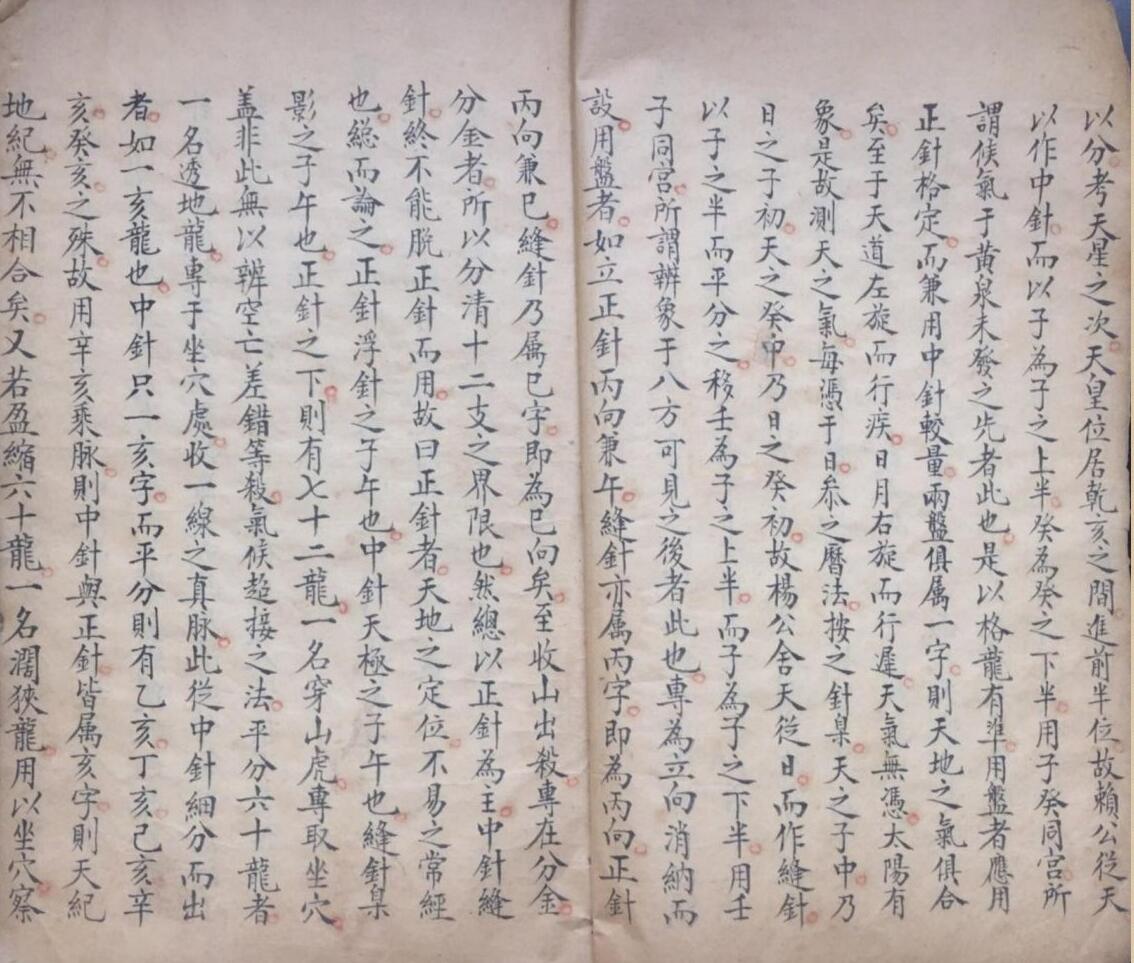 以分考天星之次天皇位居乾亥之間進前半位故賴公從天
以作中針而以子為子之上半癸為癸之下半用子癸同宮所
謂候氣于黃泉未發之先者此也是以格龍有準用盤者應用
正針格定而兼用中針較量兩盤俱属一字則天地之氣俱合
矣至于天道左旋而行疾日月右旋而行遲天氣無憑太陽有
象是故測天之氣每憑于日叅之曆法按之針臬天之子中乃
日之子初天之癸中乃日之癸初故楊公舍天從日而作縫針
以子之半而平分之移壬為子之上半而子為子之下半用壬
子同宮所謂辨象于八方可見之後者此也專為立向消納而
設用盤者如立正針丙向兼午縫針亦属丙字即為丙向正針
丙向兼巳縫針乃属巳字即為巳向矣至收山出殺專在分金
分金者所以分清十二支之界限也然總以正針為主中針縫
針終不能脫正針而用故曰正針者天地之定位不易之常經
也總而論之正針浮針之子午也中針天極之子午也縫針臬
影之子午也正針之下則有七十二龍一名穿山虎專取坐穴
盖非此無以辨空亡差錯等殺氣候超接之法平分六十龍者
一名透地龍專于坐穴處收一線之真脉此從中針細分而出
者如一亥龍也中針只一亥字而平分則有乙亥丁亥己亥辛
亥癸亥之殊故用辛亥乘脉則中針與正針皆属亥字則天紀
地紀無不相合矣又若盈縮六十龍一名濶狹龍用以坐穴察